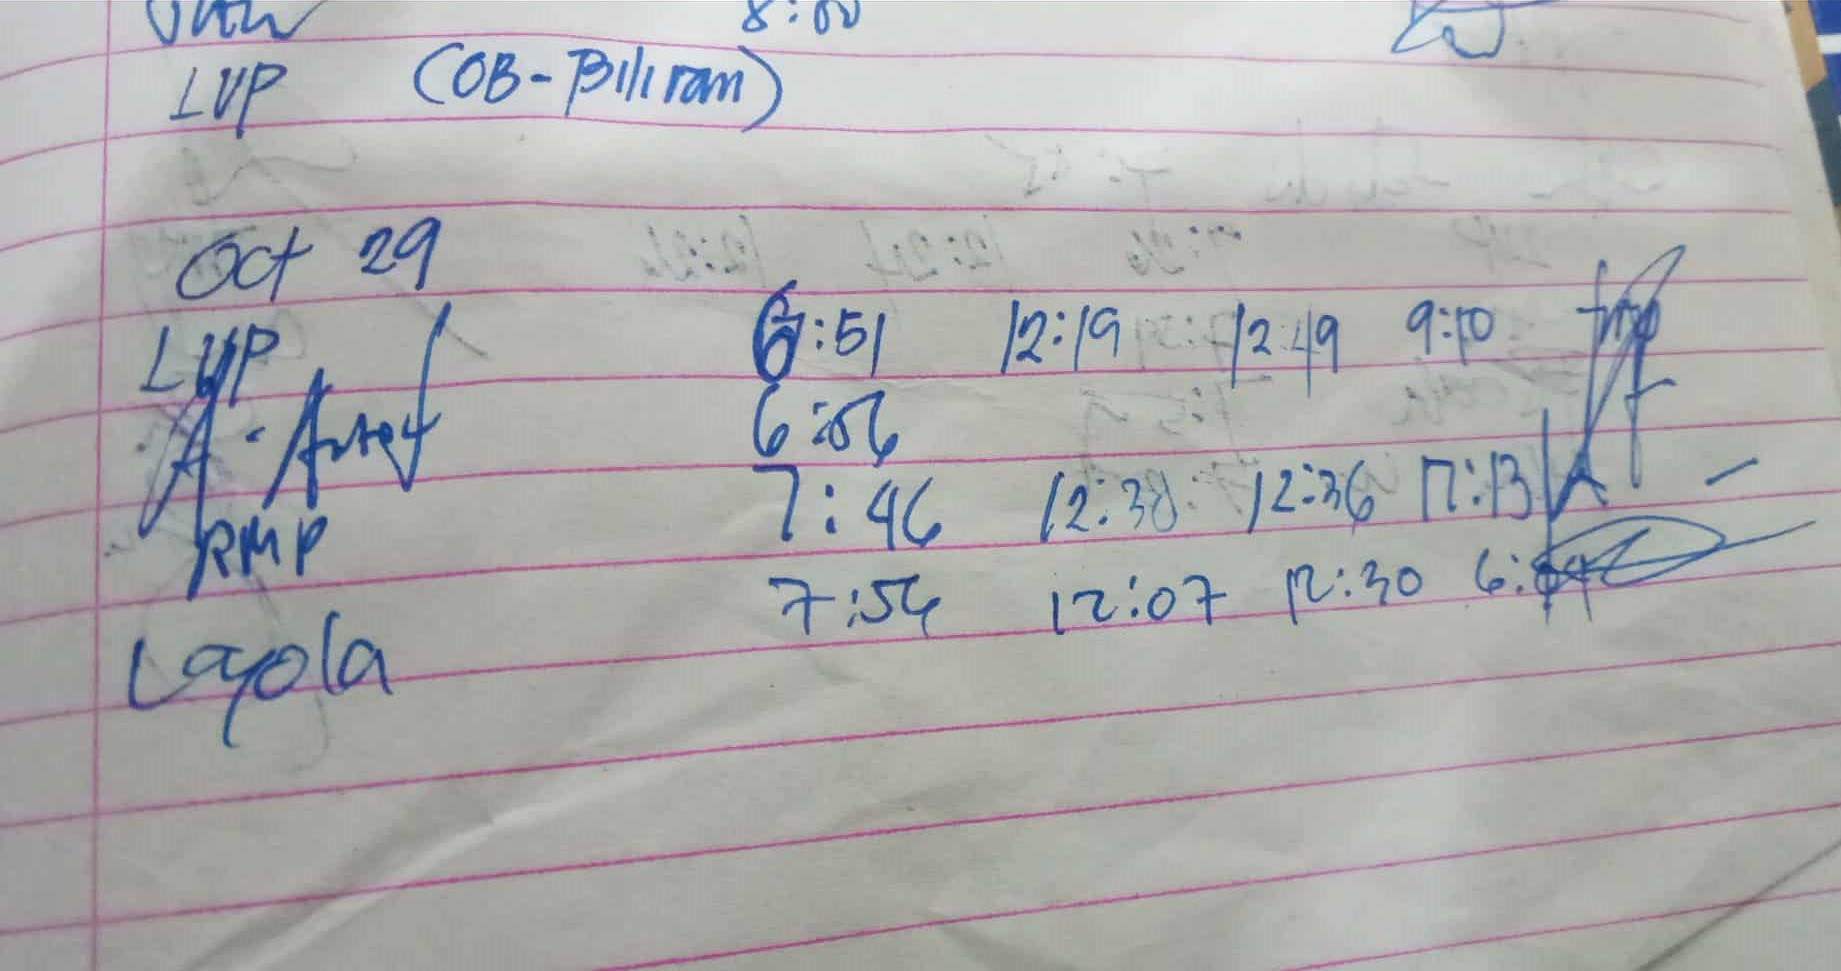 8:00
LVP (OB-Biliran)
Oct 29
LVP 6:51 12:19 12:49 9:10
A. 6:56
RMP 7:46 12:38 12:36 17:13
Loyola 7:54 12:07 12:30